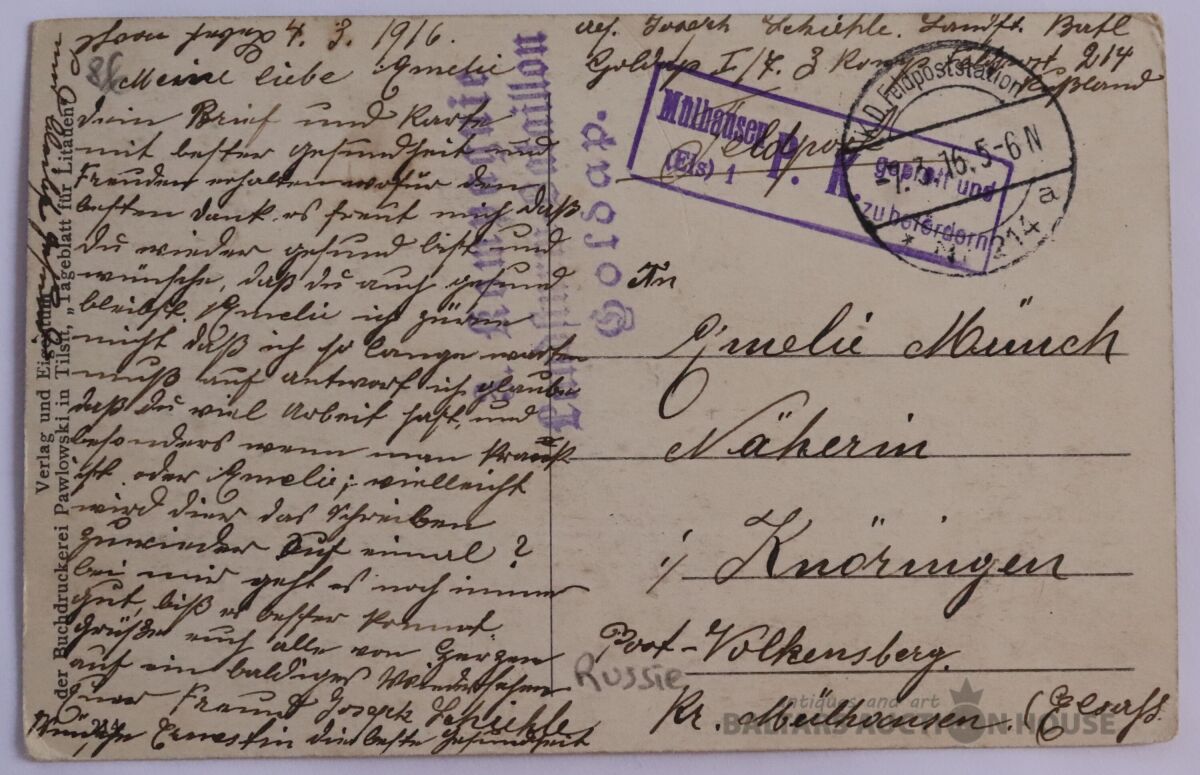 4. 3. 1916.
Meine liebe Emelie
dein Brief und Karte
mit bester gesundheit und
Freuden erhalten wofür den
besten dank. es freut mich daß
du wieder gesund bist und
wünsche, daß du auch gesund
bleibst. Emelie ich zürne
nicht daß ich so lange warten
muß auf antwort ich glaube
daß du viel Arbeit hast, und
besonders wenn man krank
ist. oder Emelie; vielleicht
wird dier das Schreiben
zuwieder auf einmal?
bei mir geht es noch immer
gut, biß es besser kommt.
Grüße euch alle von Herzen
auf ein baldiges Wiedersehen
Euer Freund Joseph Schiehle
Ernestin die beste gesundheit
Verlag und Eigentum
der Buchdruckerei Pawlowski in Tilsit, „Tageblatt für Litauen"
2. Kompagnie
Landsturm-Bataillon
Goldap.
Abs. Joseph Schiehle. Landst. Batl
Goldap I/4. 3 Komp. Feldpost 214
Rußland
Feldpost
Mülhausen
(Els) 1
P. K.
geprüft und
zu befördern
K. D. Feldpoststation
-7.3.16. 5-6 N
a
* Nr. 214
An
Emelie Münch
Näherin
i/ Knöringen
Post-Volkensberg.
Kr. Meülhausen - (Elsass
Russie
antiques and art
BALTARS AUCTION HOUSE